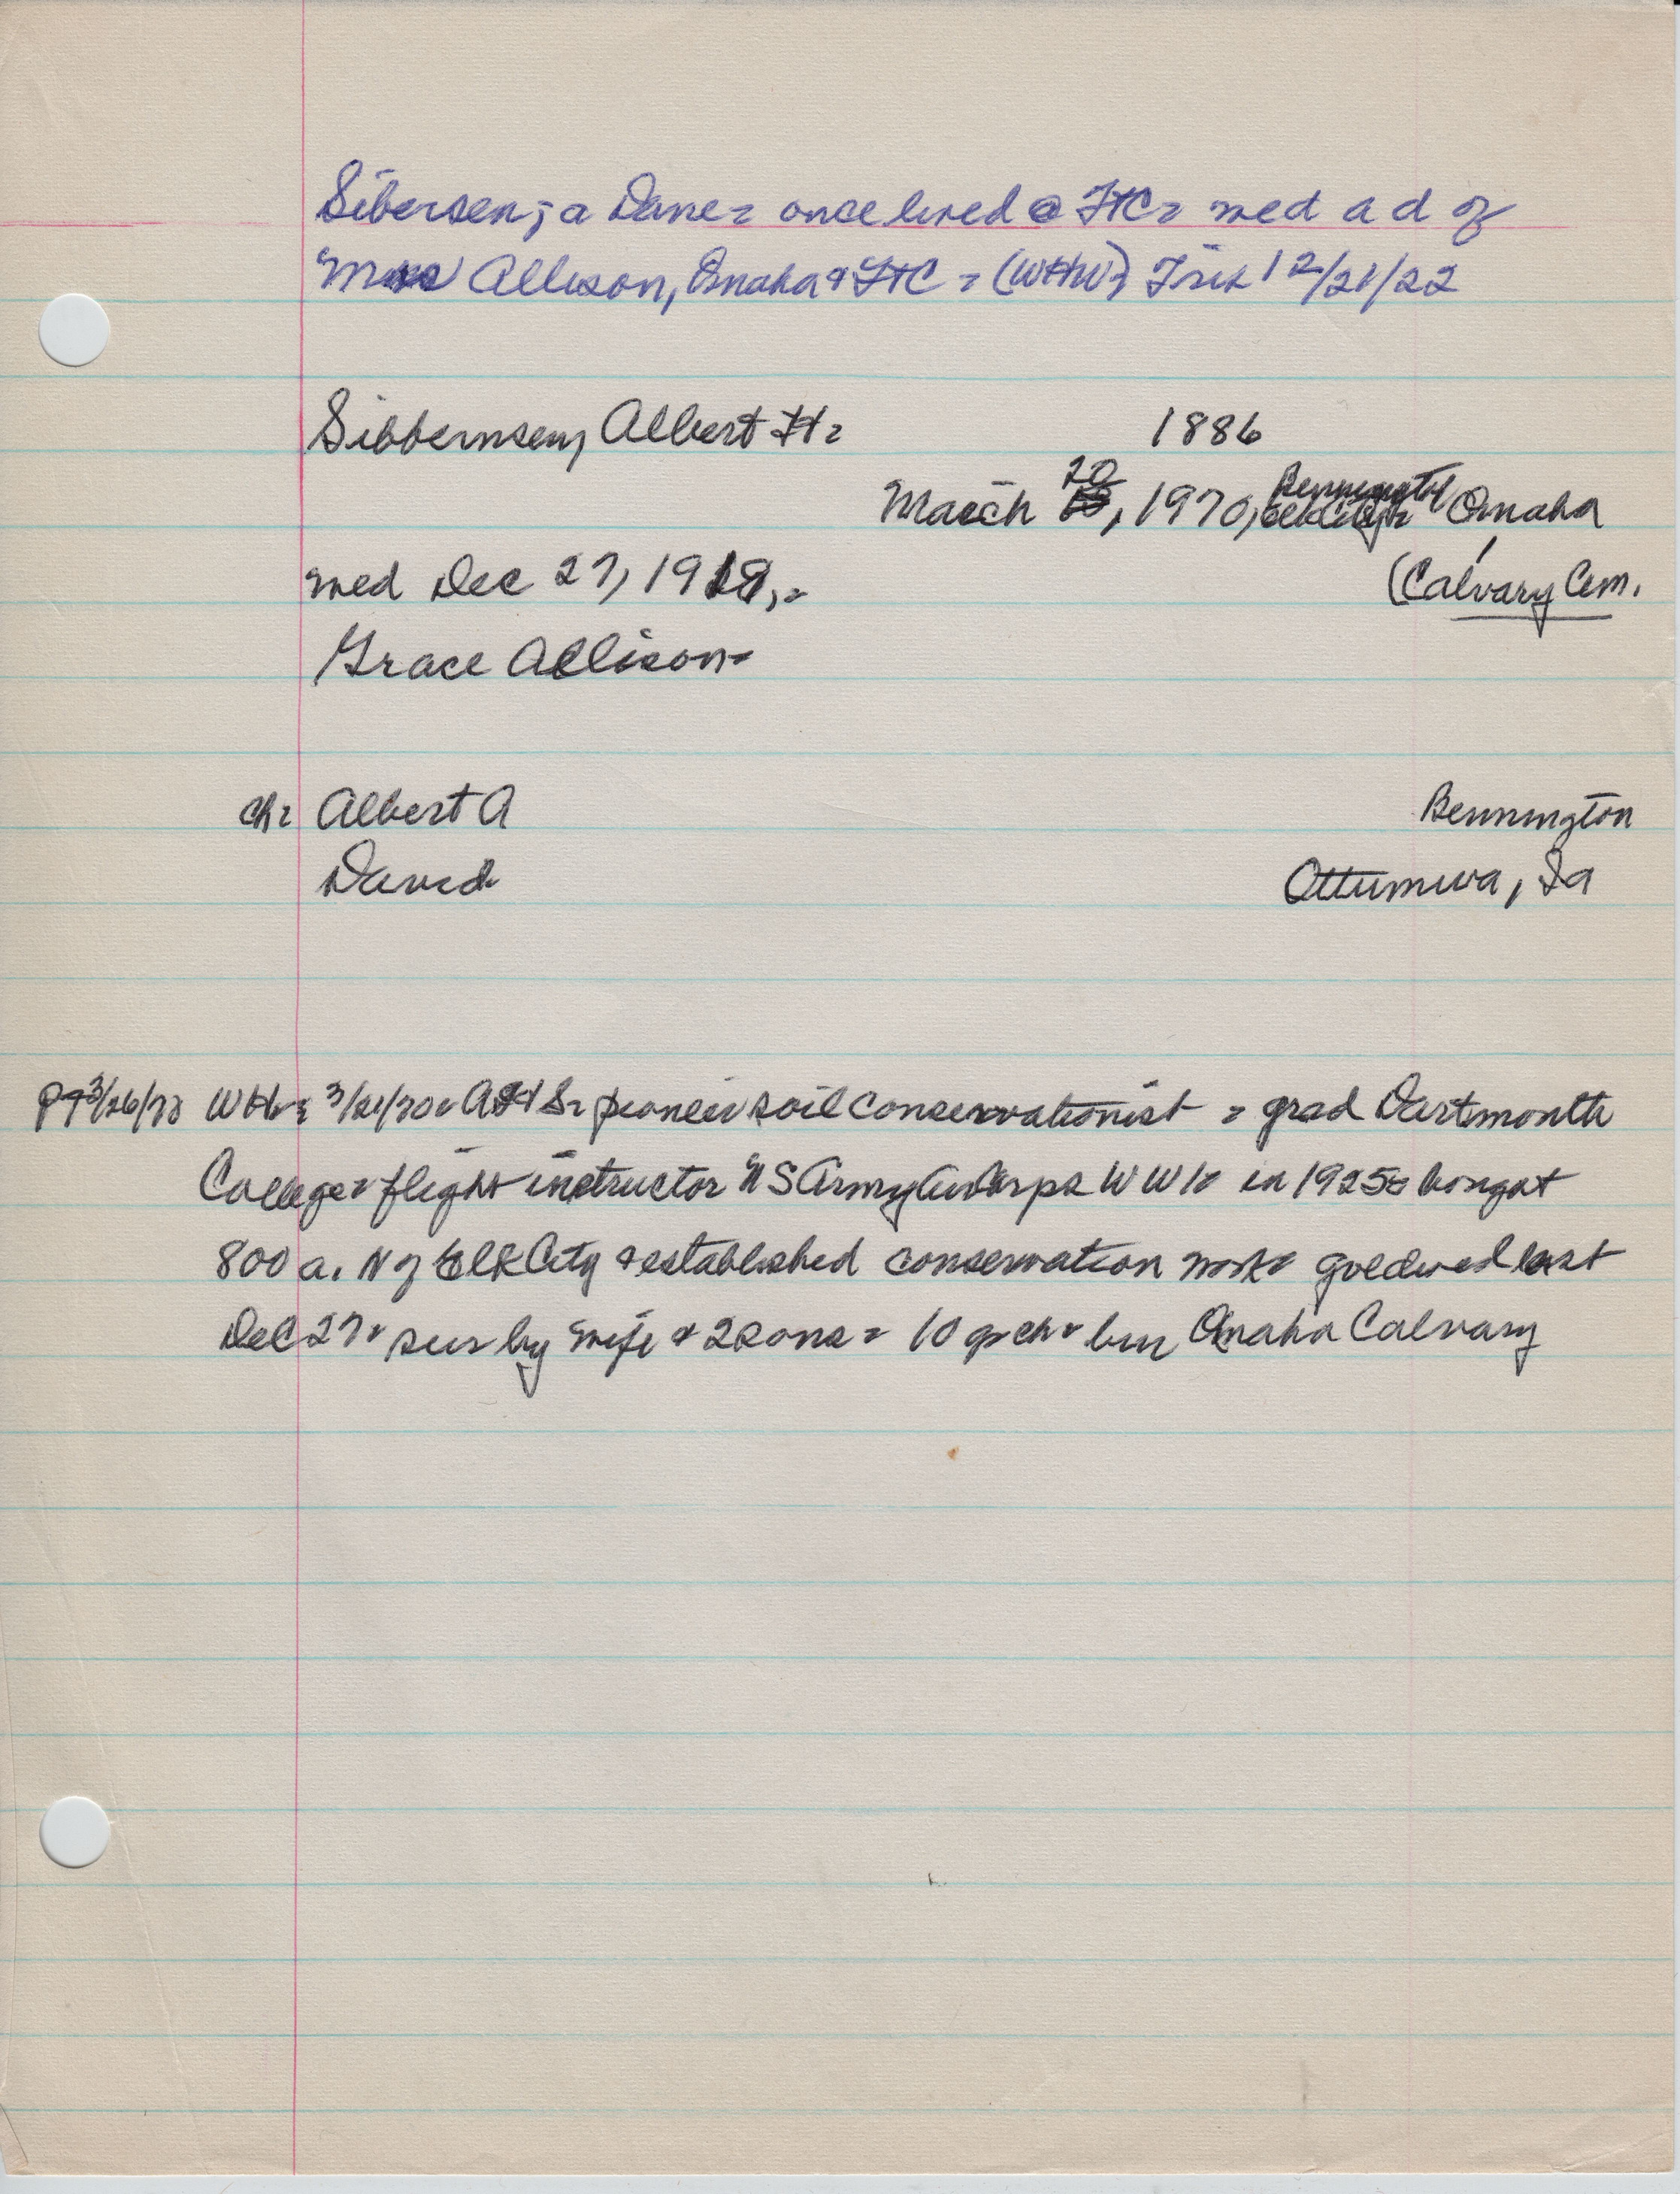 Sibersen; a Dane = once lived @ FtC = med a d of
Mrs Allison, Omaha & FtC = (WHW) 12/21/22
Sibbernsen, Albert H = 1886
20
March, 1970, Bennington Omaha
med Dec 27, 1919, =
(Calvary Cem.
Grace Allison =
ch = Albert A Bennington
David Ottumwa, Ia
PT 3/26/70 3/21/70 = Sr = pioneer soil conservationist = grad Dartmouth
College = flight instructor US Army Air Corps WW1 = in 1925 = bought
800 a. N of Elk City & established conservation work = goldwed last
Dec 27 = sur by wife & 2 sons = 10 gr ch = bur Omaha Calvary